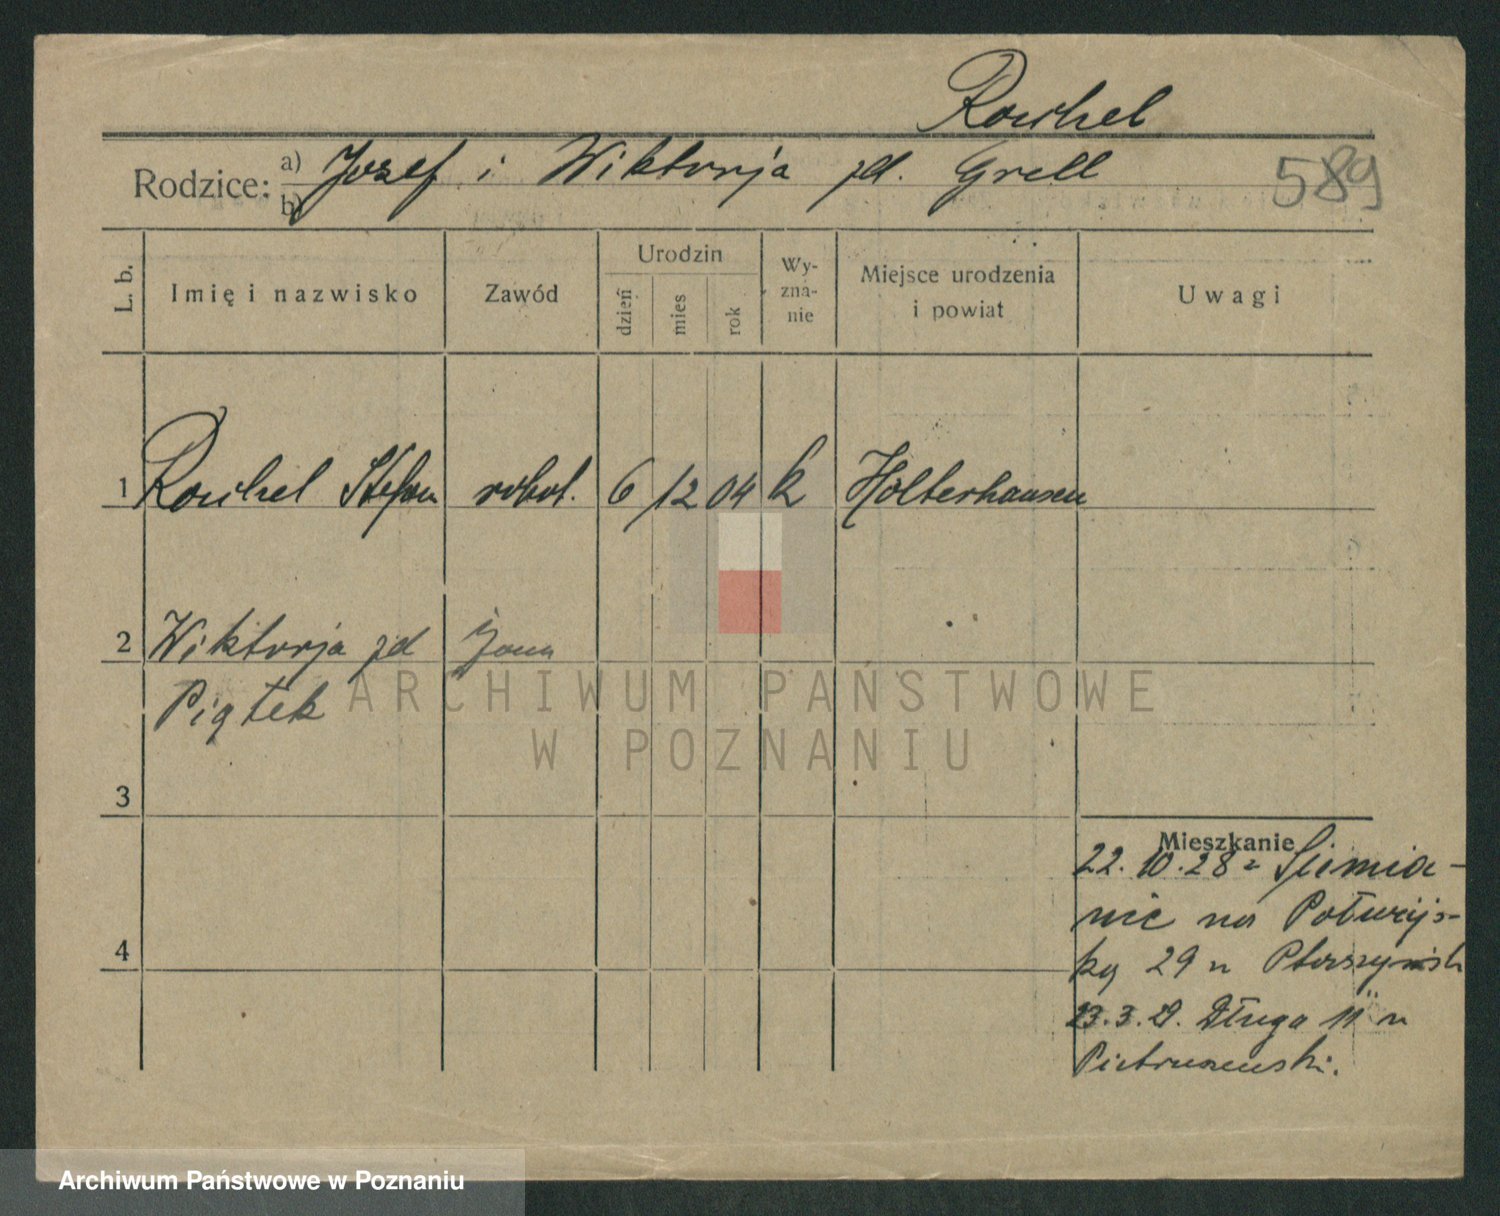 Rouhel
Rodzice: a) Jozef i Wiktorja zd. Grell
b)
589
L. b. Imię i nazwisko Zawód Urodzin dzień mies rok Wy-zna-nie Miejsce urodzenia i powiat Uwagi
1 Rouhel Stefan robot. 6 12 04 k Holterhausen
2 Wiktorja zd żona
Piątek
3
4
Mieszkanie
22.10.28 z Siemia-
nic na
29 u
23.3.29. Długa 11 u
Pietruszewski.
ARCHIWUM PAŃSTWOWE
W POZNANIU
Archiwum Państwowe w Poznaniu